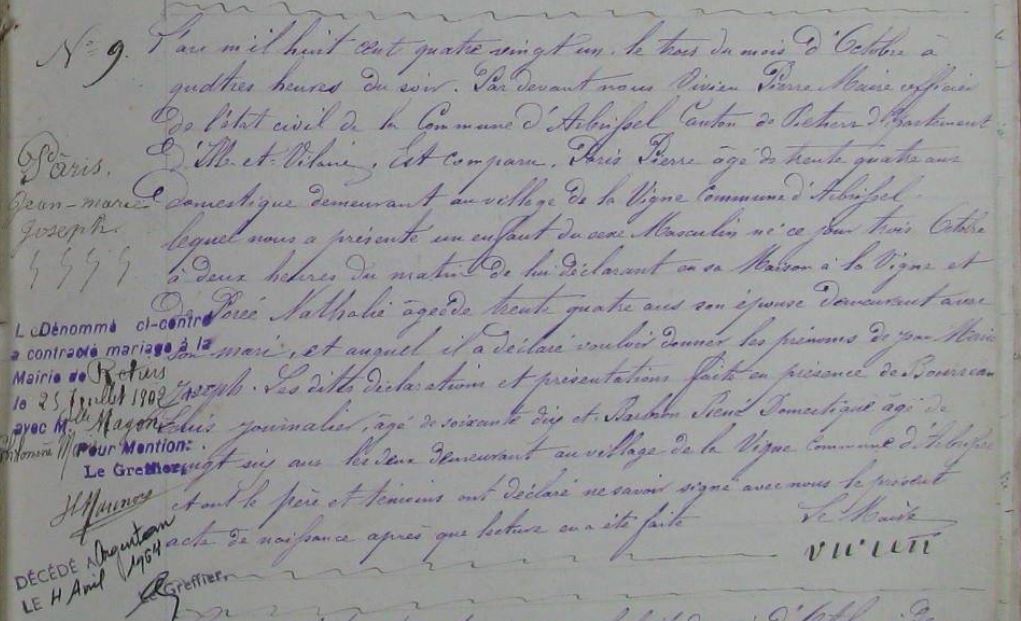 N° 9.
L'an mil huit cent quatre vingt un, le trois du mois d'Octobre à
quatres heures du soir. Par devant nous Vivien Pierre Maire officier
de l'état civil de la Commune d'Arbrissel Canton de Retiers département
d'Ille-et-Vilaine, Est comparu, Paris Pierre âgé de trente quatre ans
Domestique demeurant au village de la Vigne Commune d'Arbrissel,
lequel nous a présenté un enfant du sexe Masculin né ce jour trois Octobre
à deux heures du matin de lui déclarant en sa Maison à la Vigne et
de Porée Nathalie agée de trente quatre ans son épouse demeurant avec
son mari, et auquel il a déclaré vouloir donner les prénoms de jean Marie
Joseph. Les dites déclarations et présentations faite en présence de
Louis journalier, âgé de soixante dix et Barbon René Domestique âgé de
vingt six ans les deux demeurant au village de la Vigne Commune d'Arbrissel
étant le père et témoins ont déclaré ne savoir signé avec nous le présent
acte de naissance après que lecture en a été faite
Le Maire
vivien
Pâris.
Jean-marie
Joseph.
Le Dénommé ci-contre
a contracté mariage à la
Mairie de Retiers
le 25 Juillet 1902
avec Mlle Magon
Pour Mention:
Le Greffier,
DÉCÉDÉ A Argentan
LE 4 Avril 1964
Le Greffier,